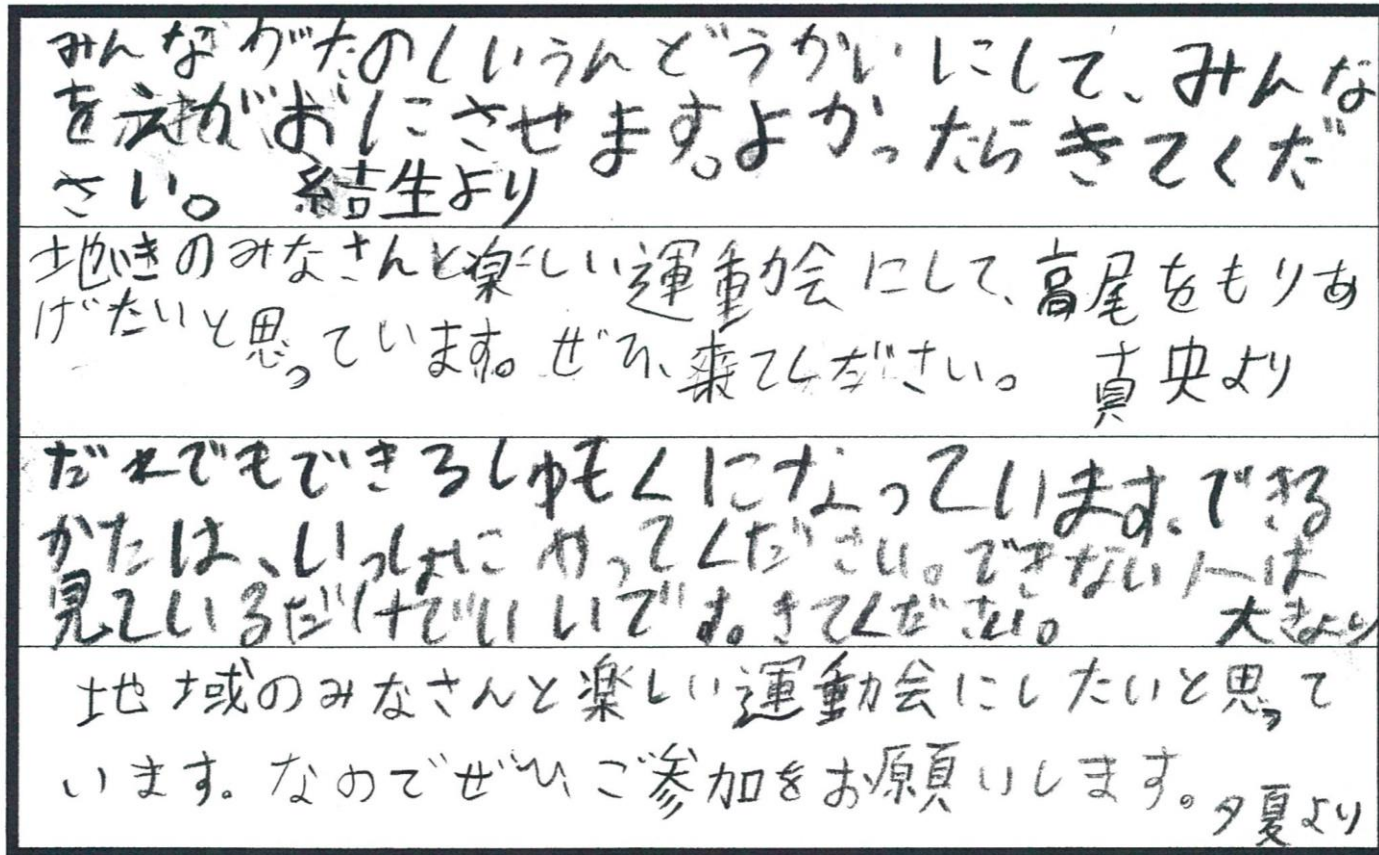 みんながたのしいうんどうかいにして、みんな
をえがおにさせます。よかったらきてくだ
さい。 結生より
地いきのみなさんと楽しい運動会にして、高尾をもりあ
げたいと思っています。ぜひ、来てください。 真央より
だれでもできるしゅもくになっています。できる
かたは、いっしょにやってください。できない人は
見ているだけでいいです。きてください。 大きより
地域のみなさんと楽しい運動会にしたいと思って
います。なのでぜひ、ご参加をお願いします。夕夏より